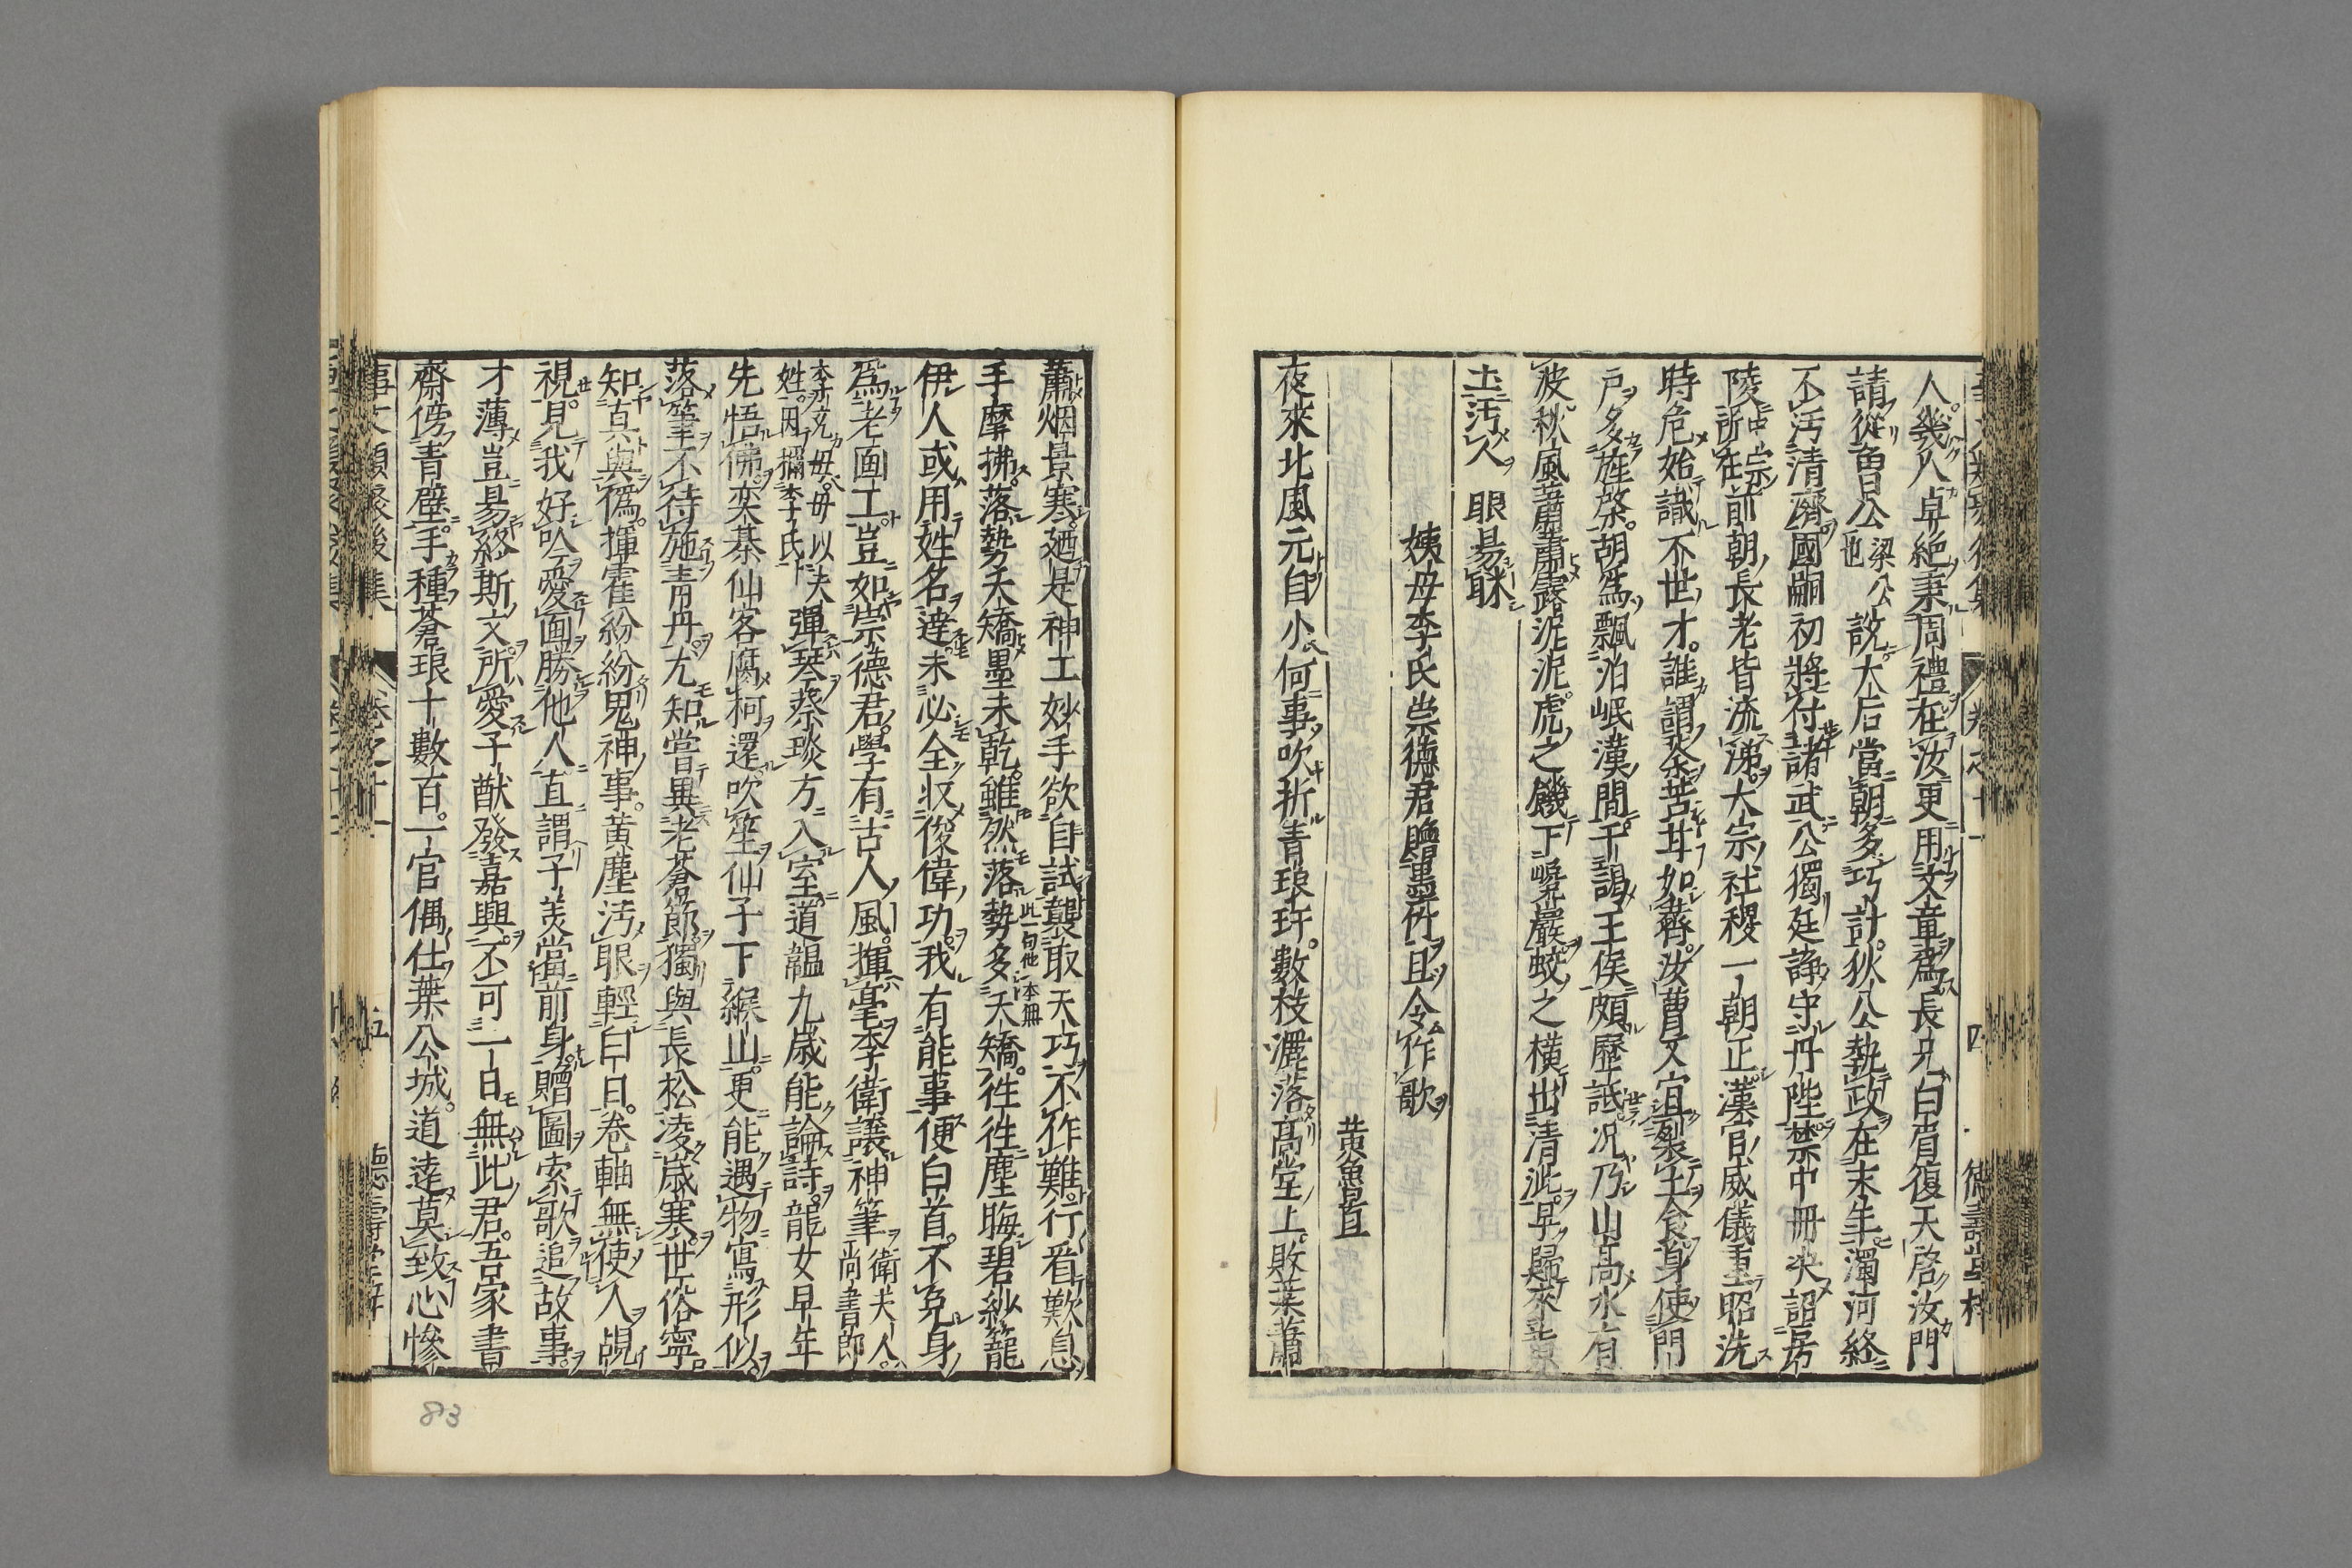 人幾人卓絶秉周禮在汝更用文章爲長兄白眉復天啓汝門
請從曾公說太后當朝多巧計狄公執政在末年濁河終
梁公
也
不汚清濟國嗣初將付諸武公獨廷諍守丹陛禁中冊决詔房
陵中宗
所在前朝長老皆流涕太宗社稷一朝正漢官威儀重昭洗
時危始識不世才誰謂荼苦甘如薺汝曹又宜裂土食身使門
戸多旌棨胡爲飄泊岷漢間干謁王侯頗歷詆况乃山高水有
波秋風蕭蕭露泥泥虎之饑下巉巖蛟之橫出清泚早歸來黄
土汚人眼易眯
姨母李氏崇德君贈墨竹且令作歌
黄魯直
夜來北風元自小何事吹折青琅玕數枝灑落高堂上敗葉蕭
蕭烟景寒廼是神工妙手欲自試襲取天巧不作難行看歎息
手摩拂落勢夭矯墨未乾雖然落勢多夭矯徃徃塵晦碧紗籠
此一句他本無
伊人或用姓名達未必全収俊偉功我有能事便白首不免身
爲老画工豈如崇德君學有古人風揮毫李衛讓神筆
衛夫人
尚書郎
李充母母以夫
姓因稱李氏
彈琴蔡琰方入室道韞九歳能論詩龍女早年
先悟佛奕棊仙客腐柯還吹笙仙子下緱山更能遇物寫形似
落筆不待施青丹尤知賞異老蒼節獨與長松凌歳寒世俗寧
知真與僞揮霍紛紛鬼神事黄塵汚眼輕白日卷軸無使人覘
視見我好吟愛画勝他人直謂子美當前身贈圖索歌追故事
才薄豈易終斯文所愛子猷發嘉興不可一日無此君吾家書
齋傍青壁手種蒼琅十數百一官偶仕葉公城道逺莫致心慘
事文類聚後集
卷之十一
五